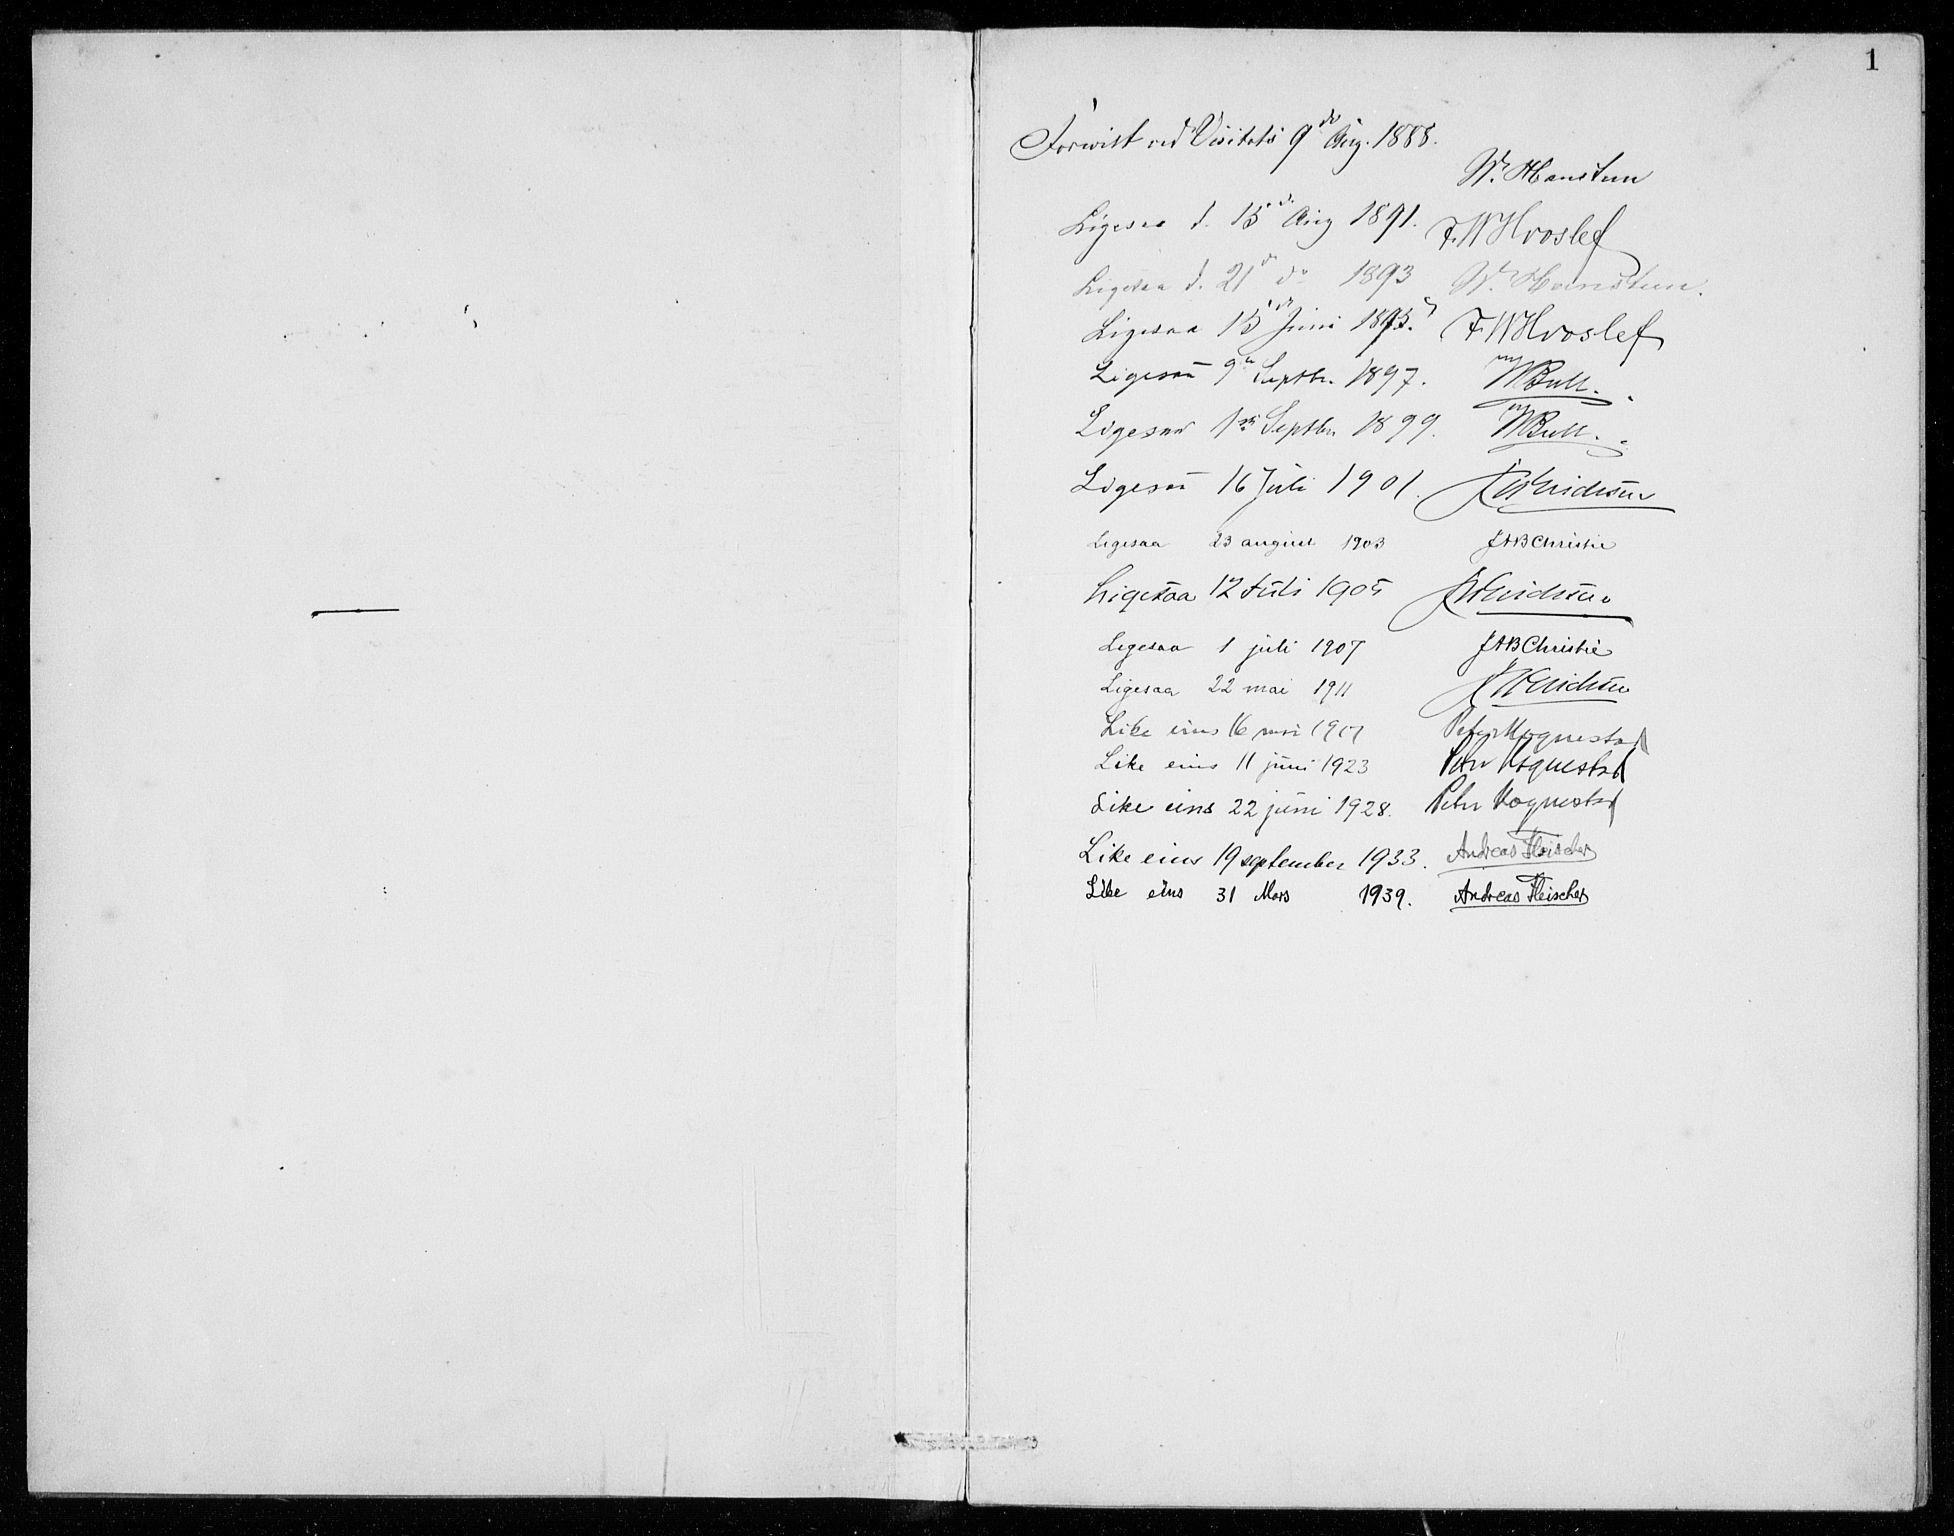 1
Forevist ved Visitats 9de Aug. 1888.
W. Hansteen
Ligesaa d. 15de Aug 1891. F. W Hvoslef
Ligesaa d. 21de do 1893 W. Hansteen.
Ligesaa 15de Juni 1895. F. W Hvoslef
Ligesaa 9de Septbr. 1897. WBull.
Ligesaa 1ste Septbr 1899. WBull.
Ligesaa 16 Juli 1901.
Ligesaa 23 august 1903 JAB Christie
Ligesaa 12 Juli 1905
Ligesaa 1 juli 1907 JAB Christie
Ligesaa 22 mai 1911
Like eins 16 mai 1917 Peter Hognestad
Like eins 11 juni 1923 Peter Hognestad
Like eins 22 juni 1928. Peter Hognestad
Like eins 19 september 1933. Andreas Fleischer
Like eins 31 Mars 1939. Andreas Fleischer